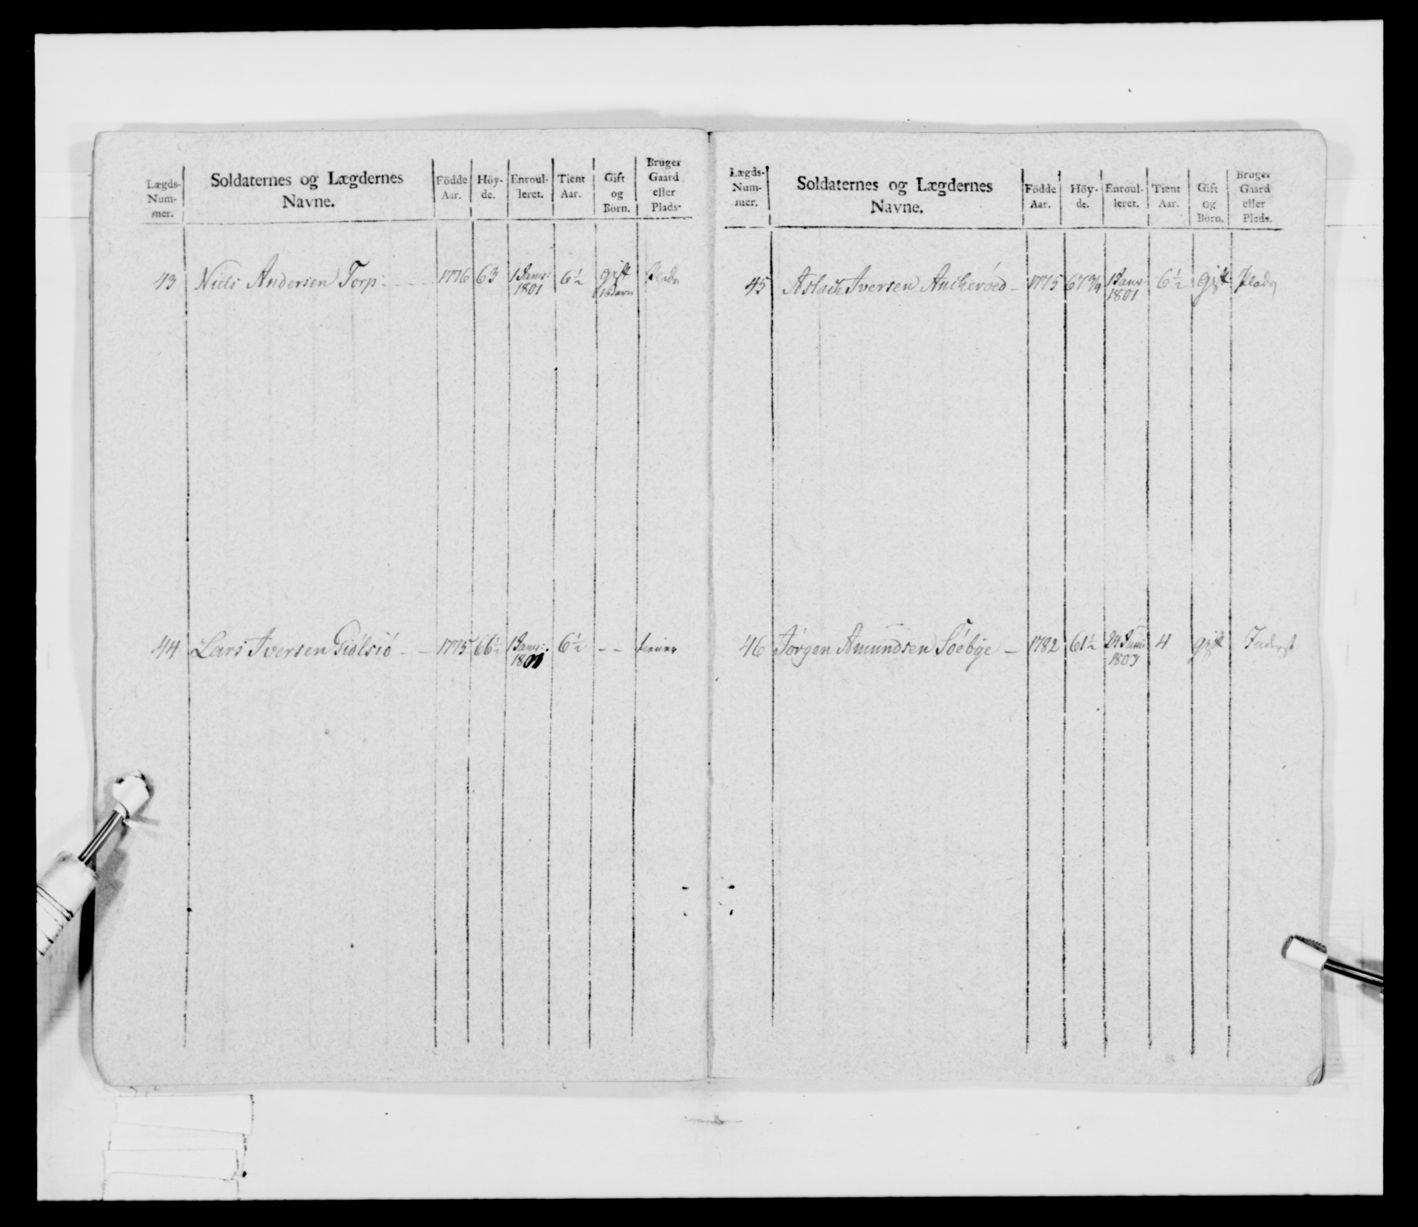 Lægds-Num-mer. Soldaternes og Lægdernes Navne. Födde Aar. Höy-de. Enroul-leret. Tient Aar. Gift og Börn. Bruger Gaard eller Plads.
43 Niels Andersen Torp: 1776 63 1 Janv: 1801 6½ gift 1 Barn Plads
44 Lars Iversen Giölsiö 1775 66½ 1 Janv: 1801 6½ - - tiener
Lægds-Num-mer. Soldaternes og Lægdernes Navne. Födde Aar. Höy-de. Enroul-leret. Tient Aar. Gift og Börn. Bruger Gaard eller Plads.
45 Aslack Iversen Anckeröed 1775 67¾ 1 Janv: 1801 6½ gift Plads
46 Jörgen Amundsen Söebye 1782 61½ 24 Juni 1803 4 gift Inderst